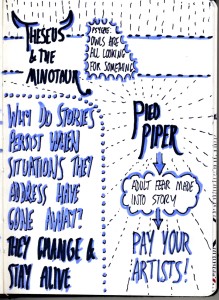 THESEUS
& THE
MINOTAUR
PSYCHE:
OWLS ARE
ALL LOOKING
FOR SOMETHING
WHY DO STORIES
PERSIST WHEN
SITUATIONS THEY
ADDRESS HAVE
GONE AWAY?
THEY CHANGE &
STAY ALIVE
PIED
PIPER
ADULT FEAR MADE
INTO STORY
PAY YOUR
ARTISTS!